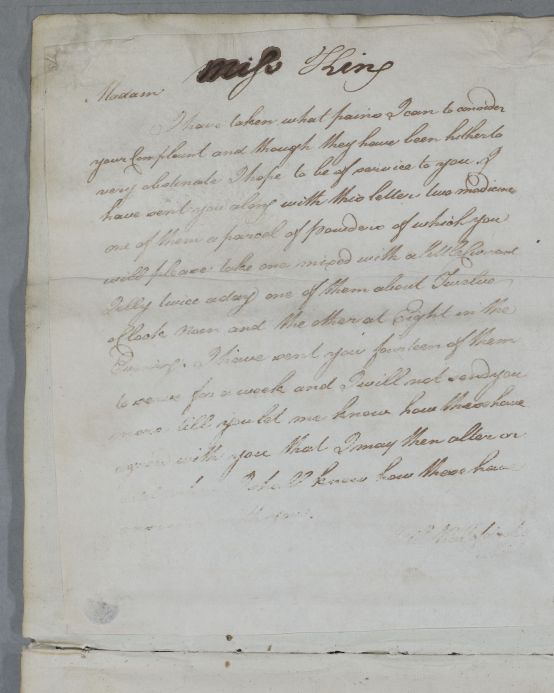 Miss King
Madam
I have taken what pains I can to consider
your Complaint and though they have been hitherto
very obstinate I hope to be of service to you I
have sent you along with this letter two medicine
one of them a parcel of powders of which you
will please take one mixed with a little Currant
Jelly twice a day one of them about Twelve
o Clock Noon and the other at Eight in the
Evening. I have sent you fourteen of them
to serve for a week and I will not send you
more till you let me know how these have
agreed with you that I may then alter or
I know how these have